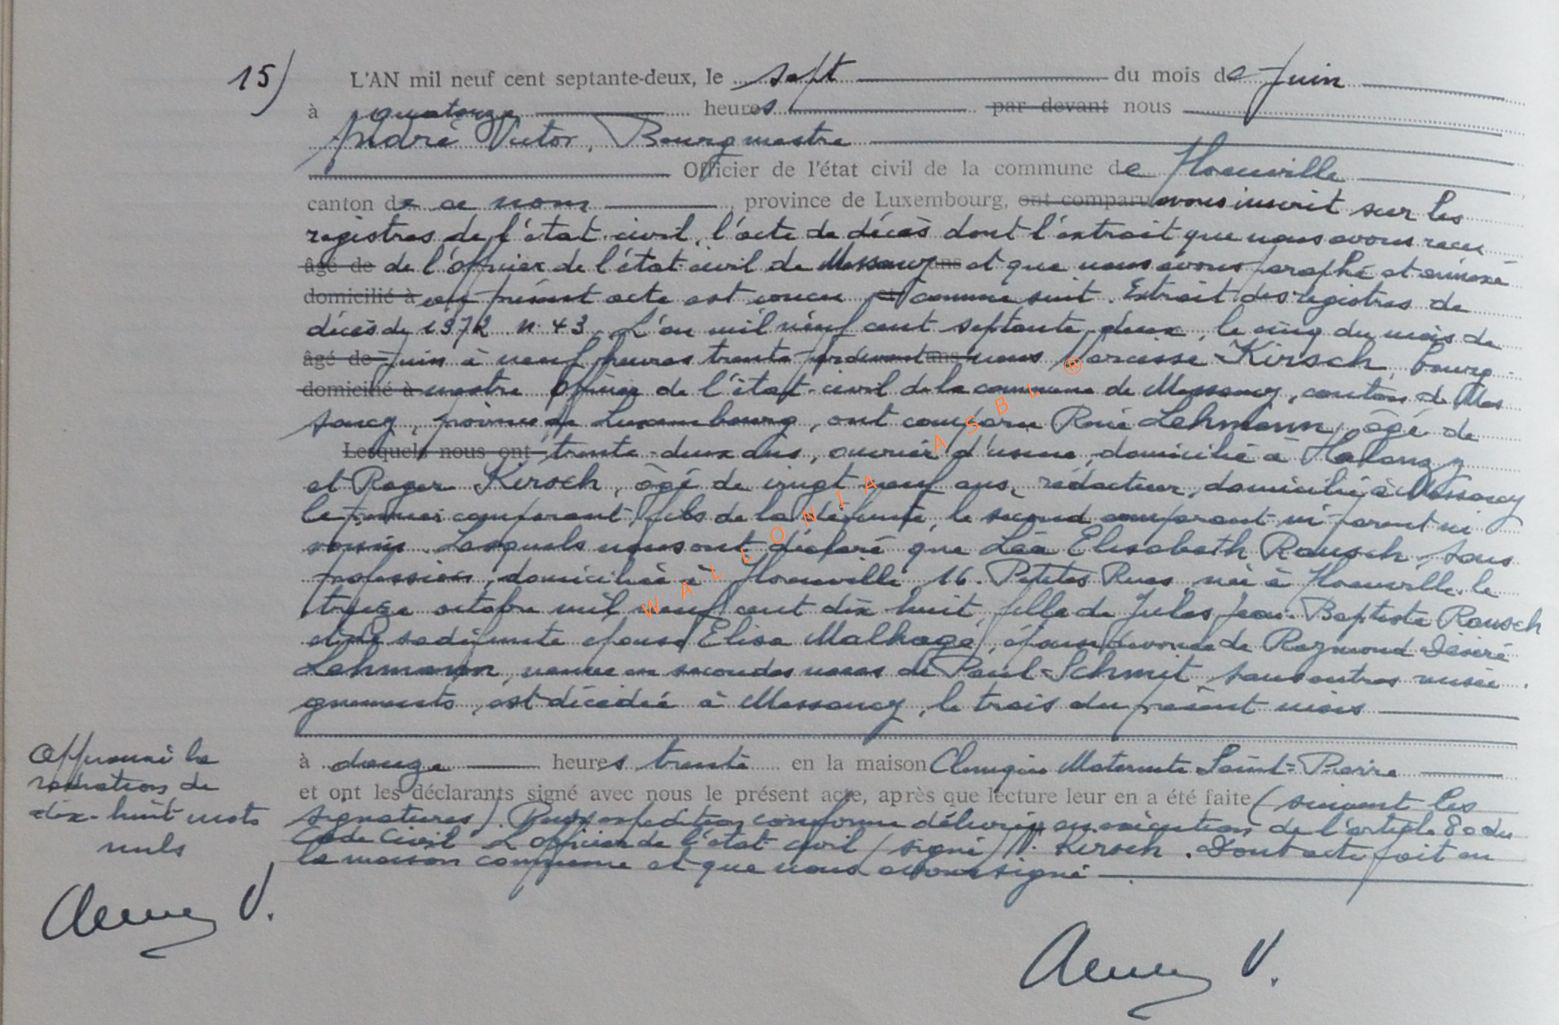 15) L'AN mil neuf cent septante-deux, le sept du mois de Juin
à quatorze heures par devant nous
André Victor, Bourgmestre
Officier de l'état civil de la commune de Florenville
canton de ce nom, province de Luxembourg, ont comparu avons inscrit sur les
registres de l'état civil, l'acte de décès dont l'extrait que nous avons recu
âgé de de l'officier de l'état civil de Messancy ans et que nous avons paraphé et annexé
domicilié à au présent acte est concu et comme suit. Extrait des registres de
décès de 1972 n. 43. L'an mil neuf cent septante deux, le cinq du mois de
âgé de Juin à neuf heures trente pardevant ans nous Narcisse Kirsch, bourg-
domicilié à mestre Officier de l'état civil de la commune de Messancy, canton de Mes
sancy, province de Luxembourg, ont comparu René Lehmann, âgé de
Lesquels nous ont trente-deux ans, ouvrier d'usine, domicilié à Halanzy
et Roger Kirsch, âgé de vingt neuf ans, rédacteur, domicilié à Messancy
le premier comparant fils de la défunte, le second comparant ni parent ni
voisin. Lesquels nous ont déclaré que Léa Elisabeth Rausch, sans
profession, domiciliée à Florenville 16. Petites Rues née à Florenville, le
treize octobre mil neuf cent dix huit, fille de Jules Jean-Baptiste Rausch
et de sa défunte épouse Elisa Malhage, épouse divorcée de Raymond Désiré
Lehmann, veuve en secondes noces de Paul Schmit sans autres rensei
gnements, est décédée à Messancy, le trois du présent mois
à douze heures trente en la maison Clinique Maternité Saint-Pierre
et ont les déclarants signé avec nous le présent acte, après que lecture leur en a été faite (suivent les
signatures). Pour expédition conforme délivrée en exécution de l'article 80 du
Code Civil L'officier de l'état civil (signé) N. Kirsch. Dont acte fait en
la maison commune et que nous avons signé
Approuvé la
radiation de
dix-huit mots
nuls
V.
V.
WALLONIA ASBL ®